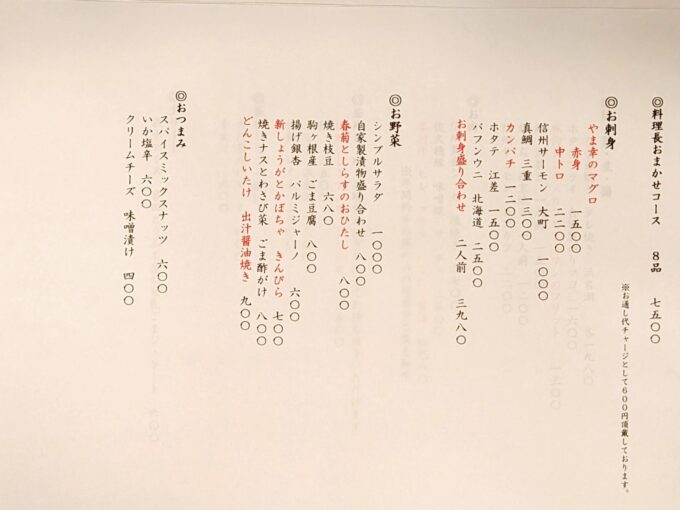 ◎料理長おまかせコース　８品　七五〇〇
※お通し代チャージとして６００円頂戴しております。
◎お刺身
やま幸のマグロ
赤身　一五〇〇
中トロ　二二〇〇
信州サーモン　大町　一〇〇〇
真鯛　三重　一三〇〇
カンパチ　一二〇〇
ホタテ　江差　一五〇〇
バフンウニ　北海道　二五〇〇
お刺身盛り合わせ　二人前　三九八〇
◎お野菜
シンプルサラダ　一〇〇〇
自家製漬物盛り合わせ　八〇〇
春菊としらすのおひたし　八〇〇
焼き枝豆　六八〇
駒ヶ根産　ごま豆腐　八〇〇
揚げ銀杏　パルミジャーノ　六〇〇
新しょうがとかぼちゃ　きんぴら　七〇〇
焼きナスとわさび菜　ごま酢がけ　八〇〇
どんこしいたけ　出汁醤油焼き　九〇〇
◎おつまみ
スパイスミックスナッツ　六〇〇
いか塩辛　六〇〇
クリームチーズ　味噌漬け　四〇〇